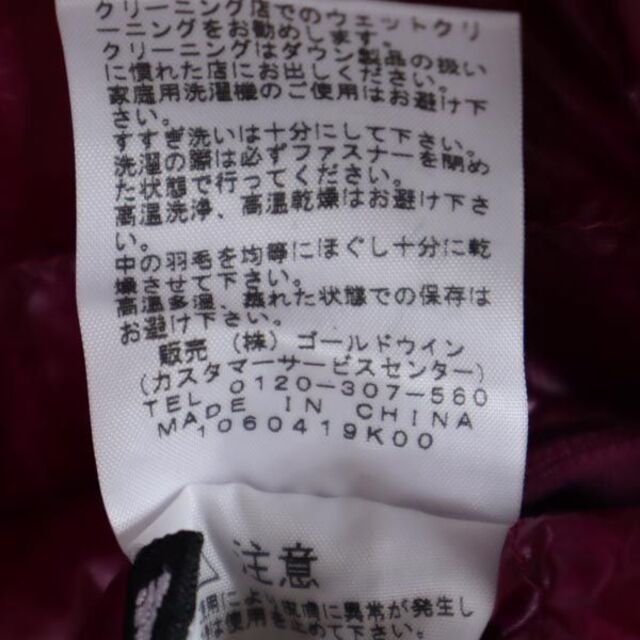 クリーニング店でのウェットクリ
ーニングをお勧めします。
クリーニングはダウン製品の扱い
に慣れた店にお出しください。
家庭用洗濯機のご使用はお避け下
さい。
すすぎ洗いは十分にして下さい。
洗濯の際は必ずファスナーを閉め
た状態で行ってください。
高温洗浄、高温乾燥はお避け下さ
い。
中の羽毛を均等にほぐし十分に乾
燥させて下さい。
高温多湿、蒸れた状態での保存は
お避け下さい。
販売 (株) ゴールドウイン
(カスタマーサービスセンター)
TEL 0120-307-560
MADE IN CHINA
1060419K00
注意
用により皮膚に異常が発生し
使用を止めて下さい。